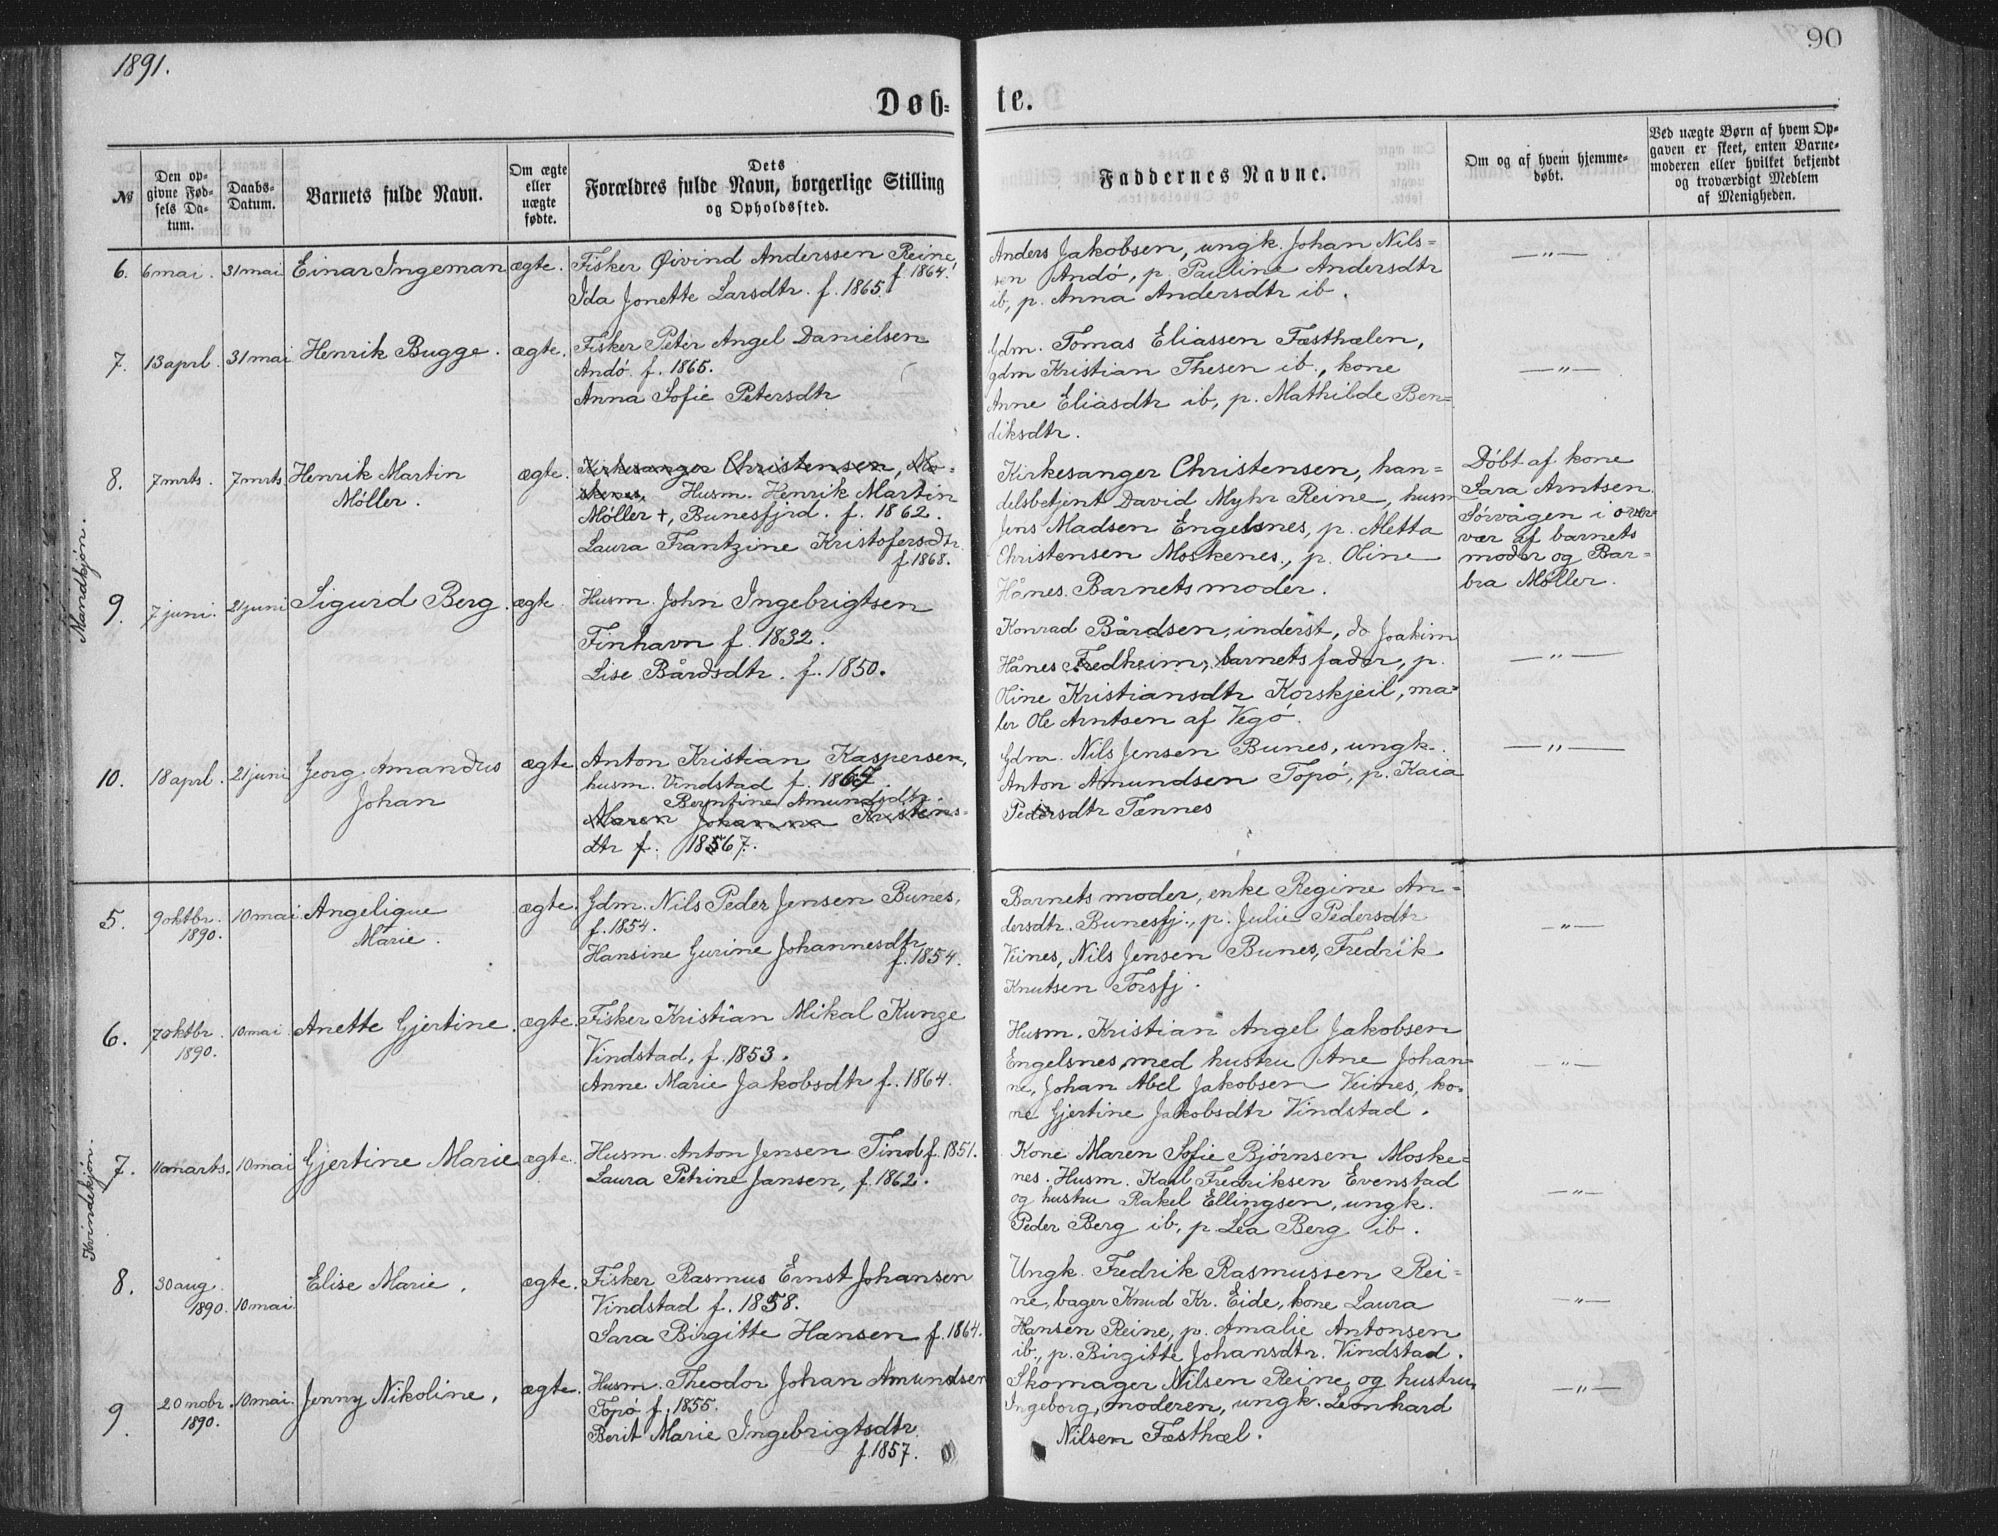 1891.
90
Døb-
te.
№
Den op-
givne Fød-
sels Da-
tum.
Daabs-
Datum.
Barnets fulde Navn.
Om ægte
eller
uægte
fødte.
Dets
Forældres fulde Navn, borgerlige Stilling
og Opholdssted.
Faddernes Navne.
Om og af hvem hjemme-
døbt.
Ved uægte Børn af hvem Op-
gaven er skeet, enten Barne-
moderen eller hvilket bekjendt
og troværdigt Medlem
af Menigheden.
Mandkjøn.
6. 6 mai. 31 mai Einar Ingeman ægte. Fisker Øivind Anderssen Reine,
f. 1864.
Ida Jonette Larsdtr. f. 1865.
Anders Jakobsen, ungk. Johan Nils=
sen Andø, p. Pauline Andersdtr
ib, p. Anna Andersdtr ib.
—"—
7. 13 aprl. 31 mai Henrik Bugge. ægte. Fisker Peter Angel Danielsen
Andø. f. 1865.
Anna Sofie Petersdtr
Gdm. Tomas Eliassen Fæsthælen,
gdm Kristian Thesen ib., kone
Anne Eliasdtr ib, p. Mathilde Ben=
diksdtr.
—"—
8. 7 mrts. 7 mrts. Henrik Martin
Møller.
ægte. Kirkesanger Christensen, Mo-
skenes, Husm. Henrik Martin
Møller +, Bunesfjrd. f. 1862.
Laura Frantzine Kristofersdtr
f. 1868.
Kirkesanger Christensen, han=
delsbetjent David Myhr Reine, husm
Jens Madsen Engelsnes, p. Aletta
Christensen Moskenes., p. Oline
Hånes. Barnets moder.
Døbt af kone
Sara Arntsen
Sørvågen i over
vær af barnets
moder og Bar=
bra Møller.
9. 7 juni. 21 juni Sigurd Berg. ægte. Husm. John Ingebrigtsen
Finhavn f. 1832.
Lise Bårdsdtr. f. 1850.
Konrad Bårdsen, inderst, do Joakim
Hånes Fredheim, barnets fader, p.
Oline Kristiansdtr Korskjeil, ma=
ler Ole Arntsen af Vegø.
—"—
10. 18 aprl. 21 juni Georg Amandus
Johan
ægte Anton Kristian Kaspersen,
husm. Vindstad f. 1867.
Berntine Amundsdtr.
Maren Johanna Kristens=
dtr f. 1867.
Gdm. Nils Jensen Bunes, ungk.
Anton Amundsen Topø, p. Kaia
Pedersdtr Tennes
—"—
Kvindekjøn.
5. 9 oktbr. 10 mai Angelique
1890. Marie.
ægte. Gdm. Nils Peder Jensen Bunes,
f. 1854.
Hansine Gurine Johannesdtr
f. 1854.
Barnets moder, enke Regine An=
dersdtr. Bunesfj., p. Julie Pedersdtr
Veines, Nils Jensen Bunes, Fredrik
Knutsen Forsfj.
—"—
6. 7 oktbr. 10 mai. Anette Gjertine. ægte. Fisker Kristian Mikal Kunge
1890. Vindstad, f. 1853.
Anne Marie Jakobsdtr f. 1864.
Husm. Kristian Angel Jakobsen
Engelsnes, med hustru Ane Johan=
ne, Johan Abel Jakobsen Veines, ko=
ne Gjertine Jakobsdtr Vindstad.
—"—
7. 11 marts. 10 mai Gjertine Marie ægte. Husm. Anton Jensen Tind f. 1851.
Laura Petrine Jansen, f. 1862.
Kone Maren Sofie Bjørnsen Moske=
nes. Husm. Karl Fredriksen Evenstad
og hustru Rakel Ellingsen, ungk.
Peder Berg ib, p. Lea Berg ib.
—"—
8. 30 aug. Elise Marie. ægte. Fisker Rasmus Ernst Johansen
1890. 10 mai. Vindstad f. 1858.
Sara Birgitte Hansen f. 1864.
Ungk. Fredrik Rasmussen Rei=
ne, bager Knud Kr. Eide, kone Laura
Hansen Reine, p. Amalie Antonsen
ib., p. Birgitte Johansdtr. Vindstad.
—"—
9. 20 nobr. 10 mai. Jenny Nikoline. ægte. Husm. Theodor Johan Amundsen
1890. Topø f. 1855.
Berit Marie Ingebrigtsdtr
f. 1857.
Skomager Nilsen Reine og hustru
Ingeborg, moderen, ungk. Leonhard
Nilsen Fæsthæl.
—"—